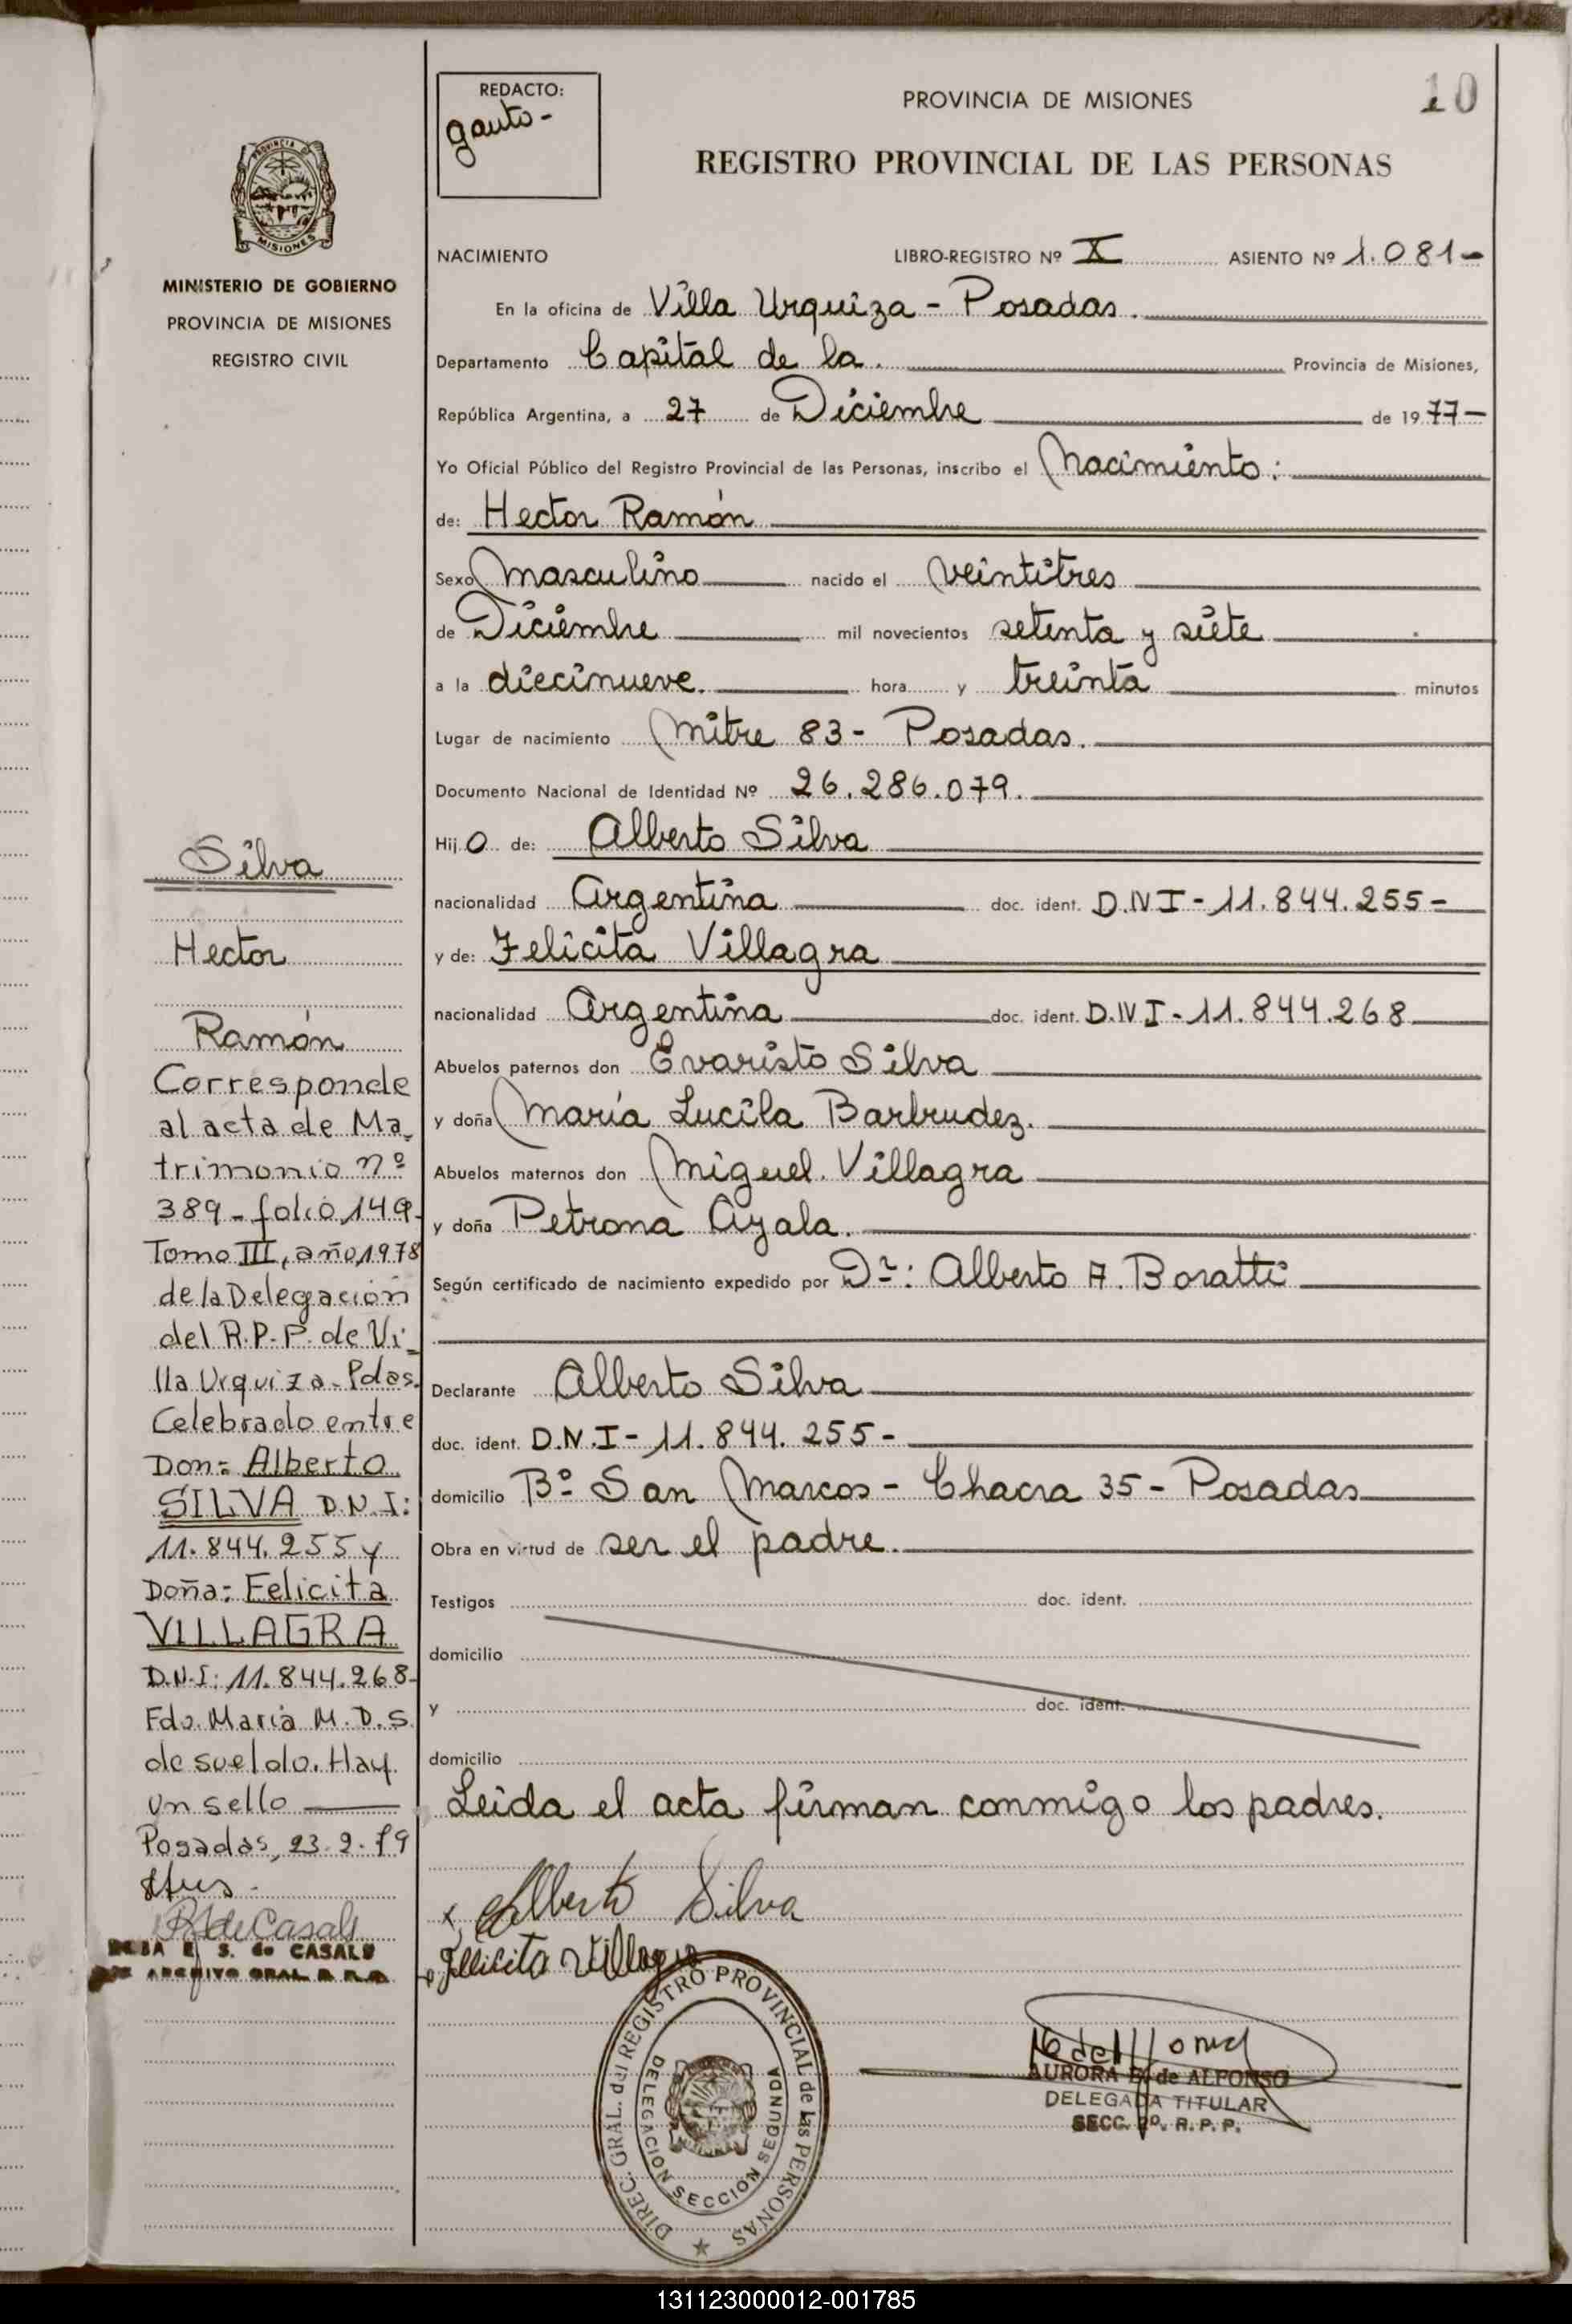 10
REDACTO:
gauto-
PROVINCIA DE MISIONES
REGISTRO PROVINCIAL DE LAS PERSONAS
PROVINCIA DE
MISIONES
MINISTERIO DE GOBIERNO
PROVINCIA DE MISIONES
REGISTRO CIVIL
NACIMIENTO LIBRO-REGISTRO Nº X ASIENTO Nº 1.081-
En la oficina de Villa Urquiza - Posadas.
Departamento Capital de la. Provincia de Misiones,
República Argentina, a 27 de Diciembre de 1977-
Yo Oficial Público del Registro Provincial de las Personas, inscribo el Nacimiento:
de: Hector Ramón
Sexo Masculino nacido el veintitres
de Diciembre mil novecientos setenta y siete
a la diecinueve. hora y treinta minutos
Lugar de nacimiento Mitre 83- Posadas.
Documento Nacional de Identidad Nº 26.286.079.
Hijo de: Alberto Silva
nacionalidad Argentina doc. ident. D.N I - 11.844.255-
y de: Felicita Villagra
nacionalidad Argentina doc. ident. D.N I - 11.844.268
Abuelos paternos don Evaristo Silva
y doña María Lucila Barbrudez.
Abuelos maternos don Miguel. Villagra
y doña Petrona Ayala.
Según certificado de nacimiento expedido por Dr: Alberto A. Boratti
Declarante Alberto Silva
doc. ident. D.N.I - 11.844.255-
domicilio Bº San Marcos - Chacra 35 - Posadas
Obra en virtud de ser el padre.
Testigos doc. ident.
domicilio
y doc. ident.
domicilio
Leida el acta firman conmigo los padres.
Alberto Silva
Felicita Villagra
Silva
Hector
Ramón
Corresponde
al acta de Ma-
trimonio nº
389 - folio 149-
Tomo III, año 1978
de la Delegación
del R.P.P. de Vi-
lla Urquiza - Pdas.
Celebrado entre
Don: Alberto
SILVA D.N.I:
11.844.255 y
Doña: Felicita
VILLAGRA
D.N.I: 11.844.268-
Fdo. Maria M. D. S.
de sueldo. Hay
un sello
Posadas, 23.2.79
R S de Casals
E. S. de CASALS
ARCHIVO GRAL. R. P. P.
DIREC. GRAL. del REGISTRO PROVINCIAL de las PERSONAS
DELEGACION SECCION SEGUNDA
AURORA E. de ALFONSO
DELEGADA TITULAR
SECC. 2º. R. P. P.
131123000012-001785